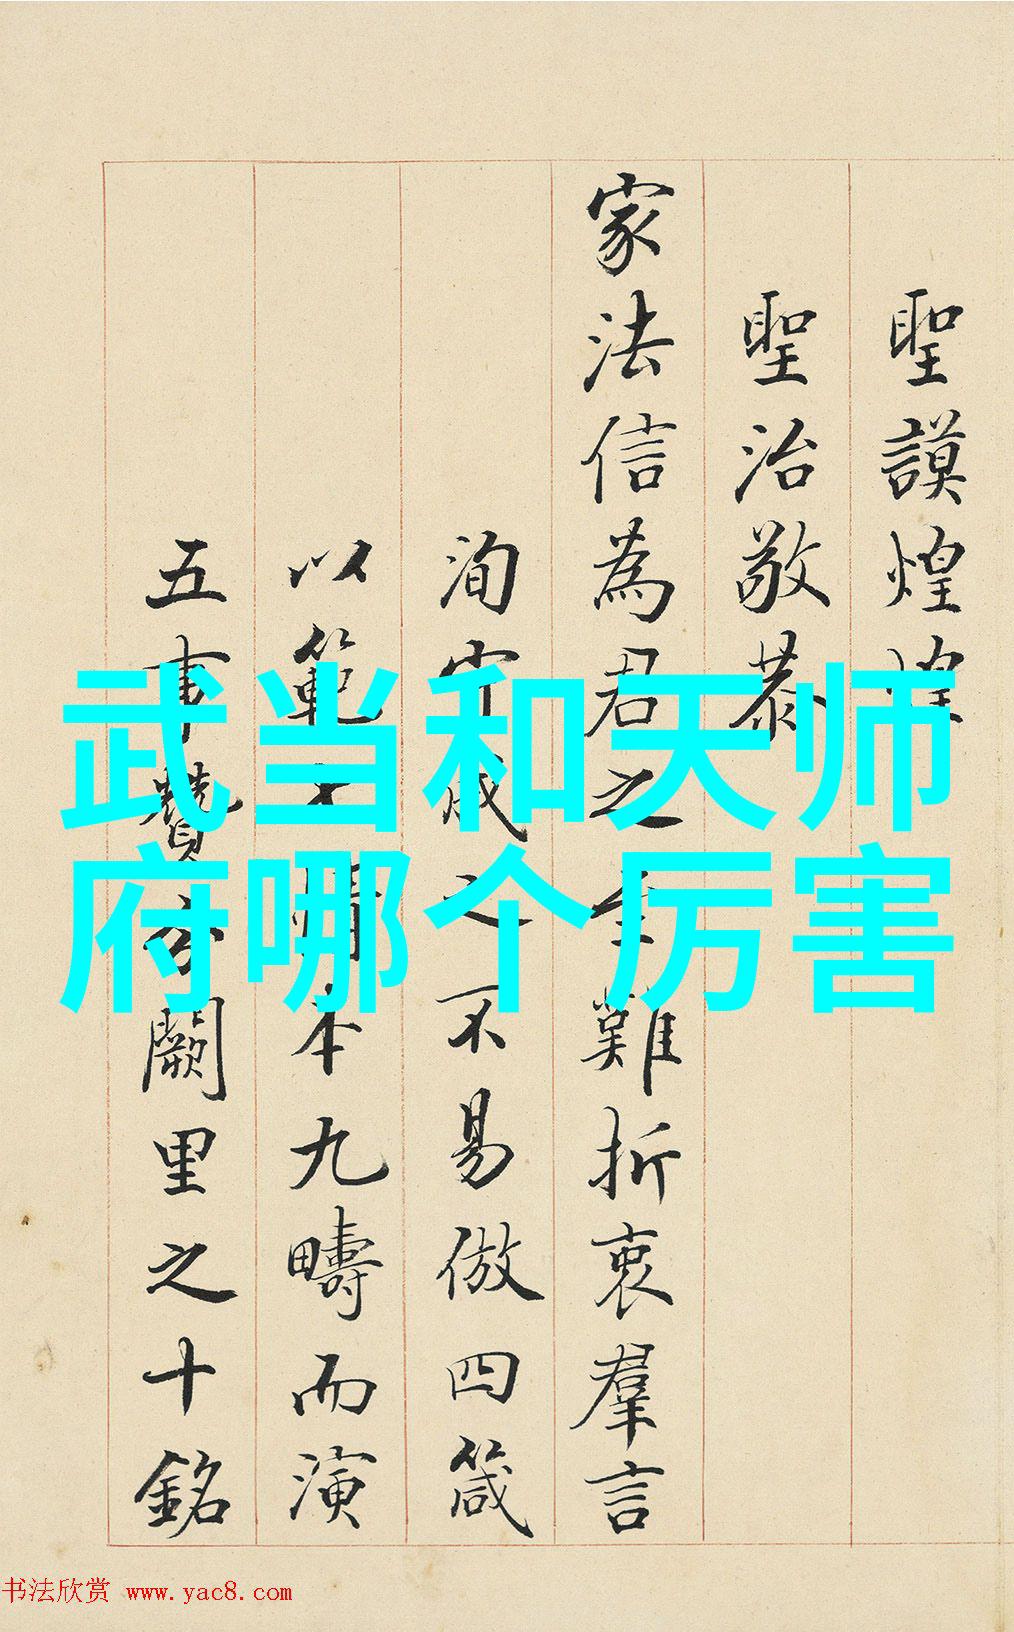 聖謨煌煌
聖治敬恭
家法信為君之難折衷羣言
洵守成之不易倣四箴
以範七情本九疇而演
五事贊闕里之十銘
武当和天师
府哪个厉害
书法欣赏 www.yac8.com